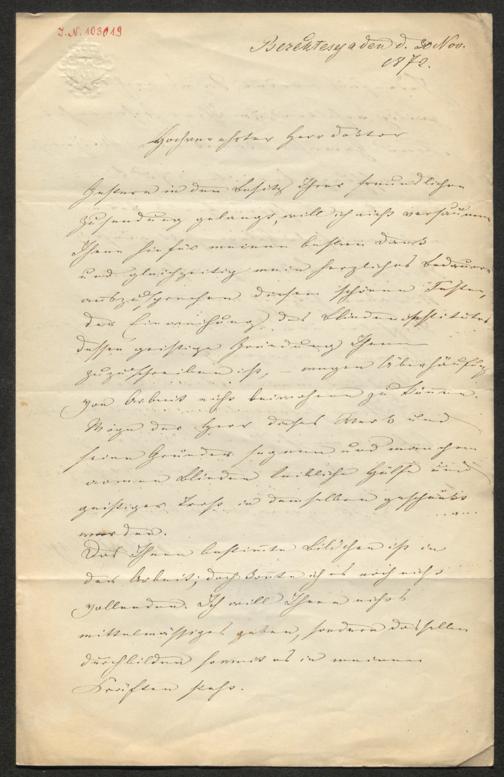 J. N. 103019
Berchtesgaden d. 30 Nov.
1872.
Hochverehrter Herr Doktor
Gestern in den Besitz Ihrer freundlichen
Zusendung gelangt, will ich nicht versäumen
Ihnen hiefür meinen besten Dank
und gleichzeitig mein herzliches Bedauern
auszusprechen diesem schönen Feste,
der Einweihung des Blindeninstitutes
dessen geistige Gründung Ihnen
zuzuschreiben ist, – wegen Überhäufung
von Arbeit nicht beiwohnen zu können.
Möge der Herr dieses Werk und
seine Gründer segnen und manchem
armen Blinden leibliche Hülfe und
geistiger Trost in demselben geschenkt
werden.
Das Ihnen bestimmte Bildchen ist in
der Arbeit, doch konnte ich es noch nicht
vollenden. Ich will Ihnen nichts
mittelmässiges geben, sondern dasselbe
durchbilden soweit es in meinen
Kräften steht.